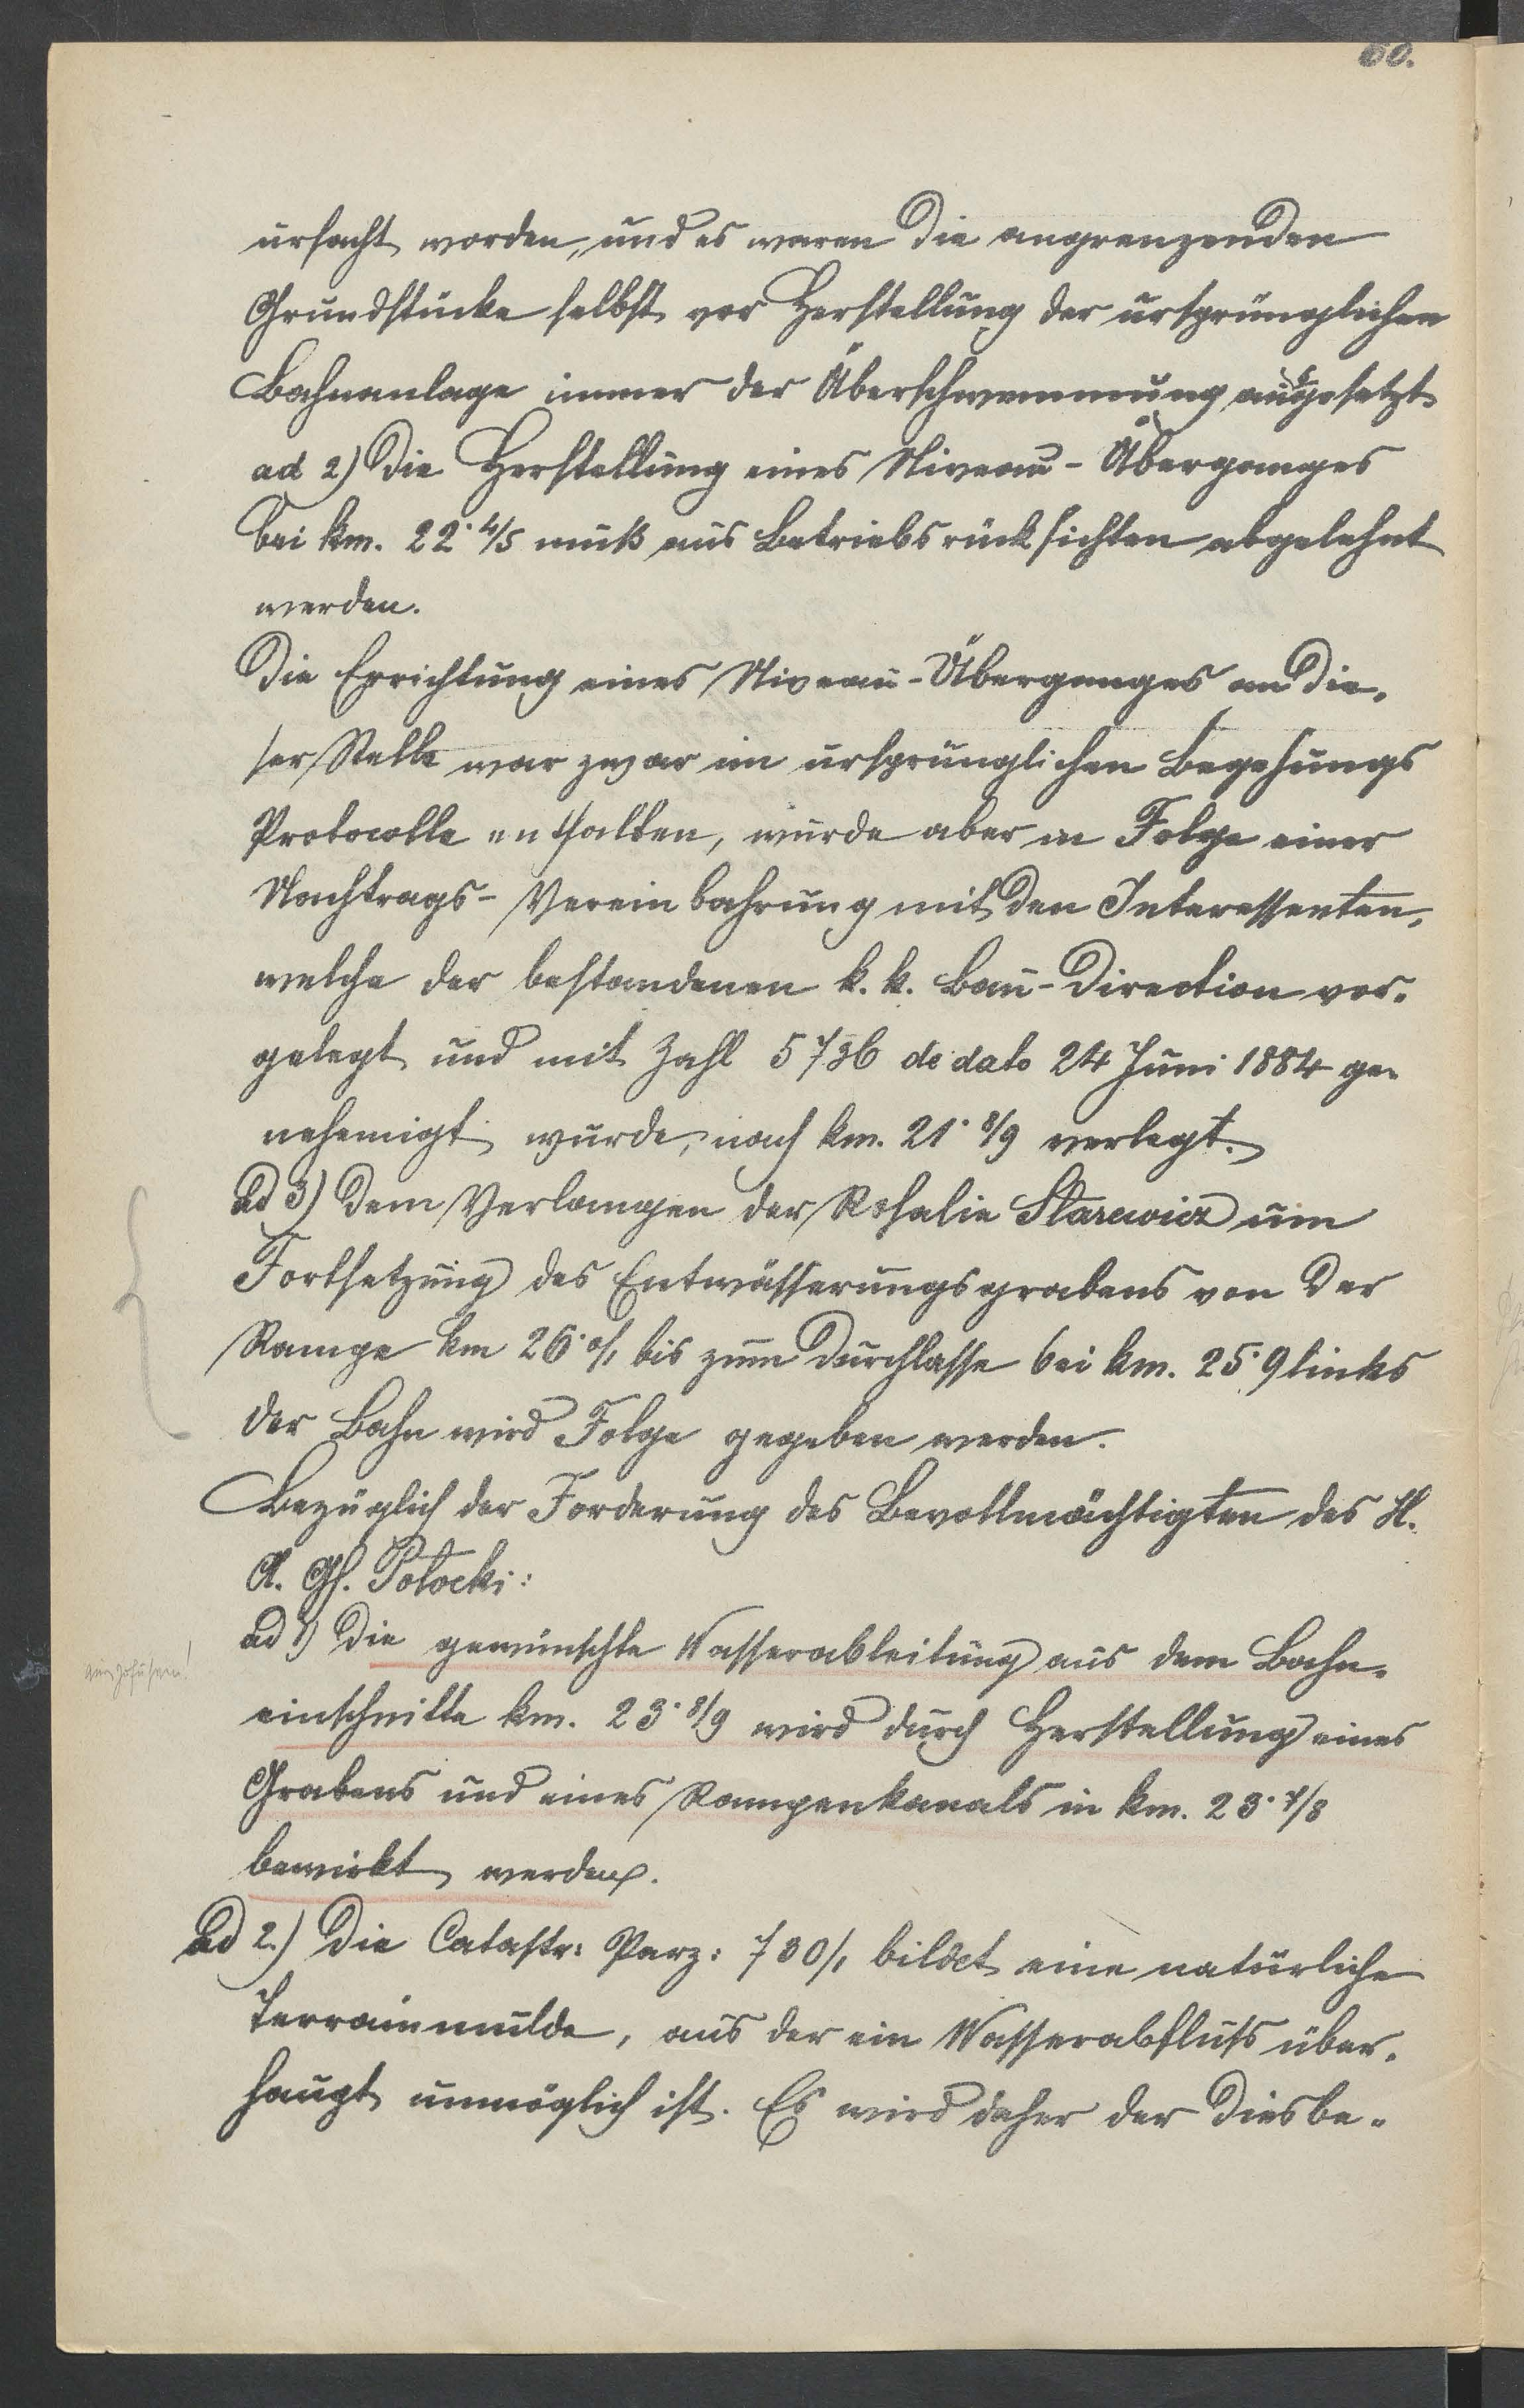 60.
ursacht worden, und es waren die angrenzenden
Grundstücke selbst vor Herstellung der ursprünglichen
Bahnanlage immer der Überschwemmung ausgesetzt.
ad 2) Die Herstellung eines Niveau-Überganges
bei km. 22·4/5 muß aus Betriebsrücksichten abgelehnt
werden.
Die Errichtung eines Niveau-Überganges an die-
ser Stelle war zwar im ursprünglichen Begehungs
Protocolle enthalten, wurde aber in Folge einer
Nachtrags-Vereinbahrung mit den Interessenten,
welche der bestandenen k. k. Bau-Direction vor-
gelegt und mit Zahl 5736 de dato 24 Juni 1884 ge-
nehemigt wurde, nach km. 21·8/9 verlegt.
Ad 3) Dem Verlangen der Rosalie Starewicz um
Fortsetzung des Entwässerungsgrabens von der
Rampe km 26·0/1 bis zum Durchlasse bei km. 25·9 links
der Bahn wird Folge gegeben werden.
Bezüglich der Forderung des Bevollmächtigten des H.
A. Gf. Potocki:
ad 1) Die gewünschte Wasserableitung aus dem Bahn-
auszuführen!
einschnitte km. 23·8/9 wird durch Herstellung eines
Grabens und eines Rampenkanals in km. 23·7/8
bewirkt werden.
Ad 2.) Die Catastr: Parz: 730/1 bildet eine natürliche
Terrainmulde, aus der ein Wasserabfluss über-
haupt unmöglich ist. Es wird daher der diesbe-